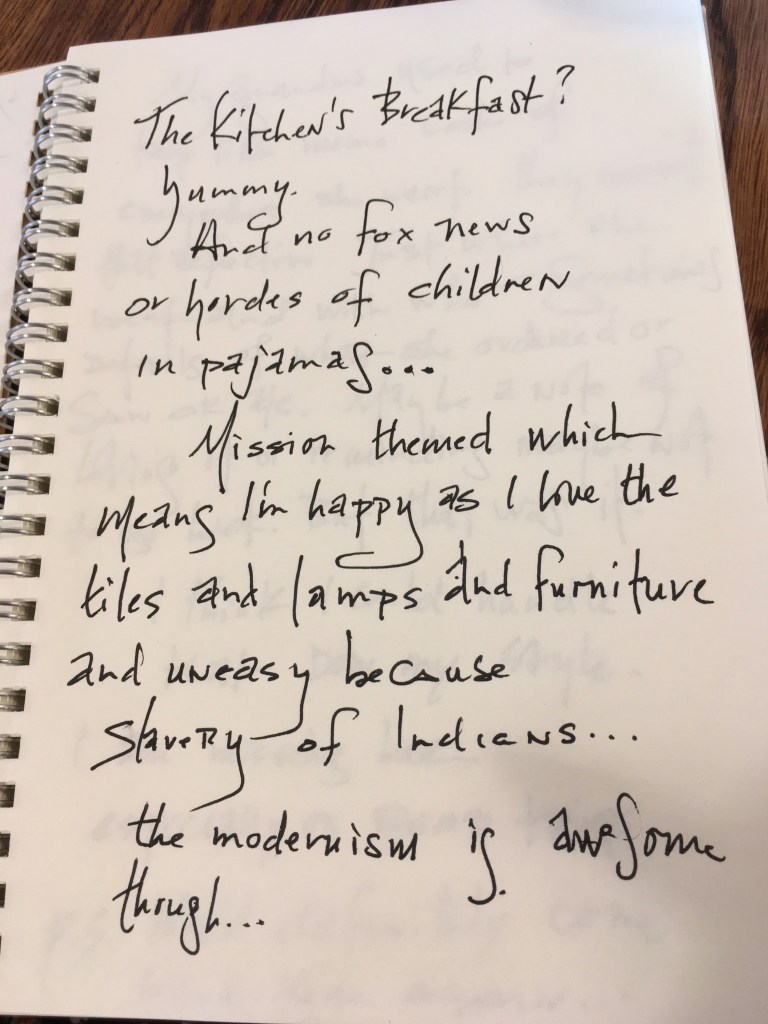 The Kitchen's Breakfast?
Yummy.
And no fox news
or hordes of children
in pajamas...
Mission themed which
means I'm happy as I love the
tiles and lamps and furniture
and uneasy because
slavery of Indians...
the modernism is awesome
though...